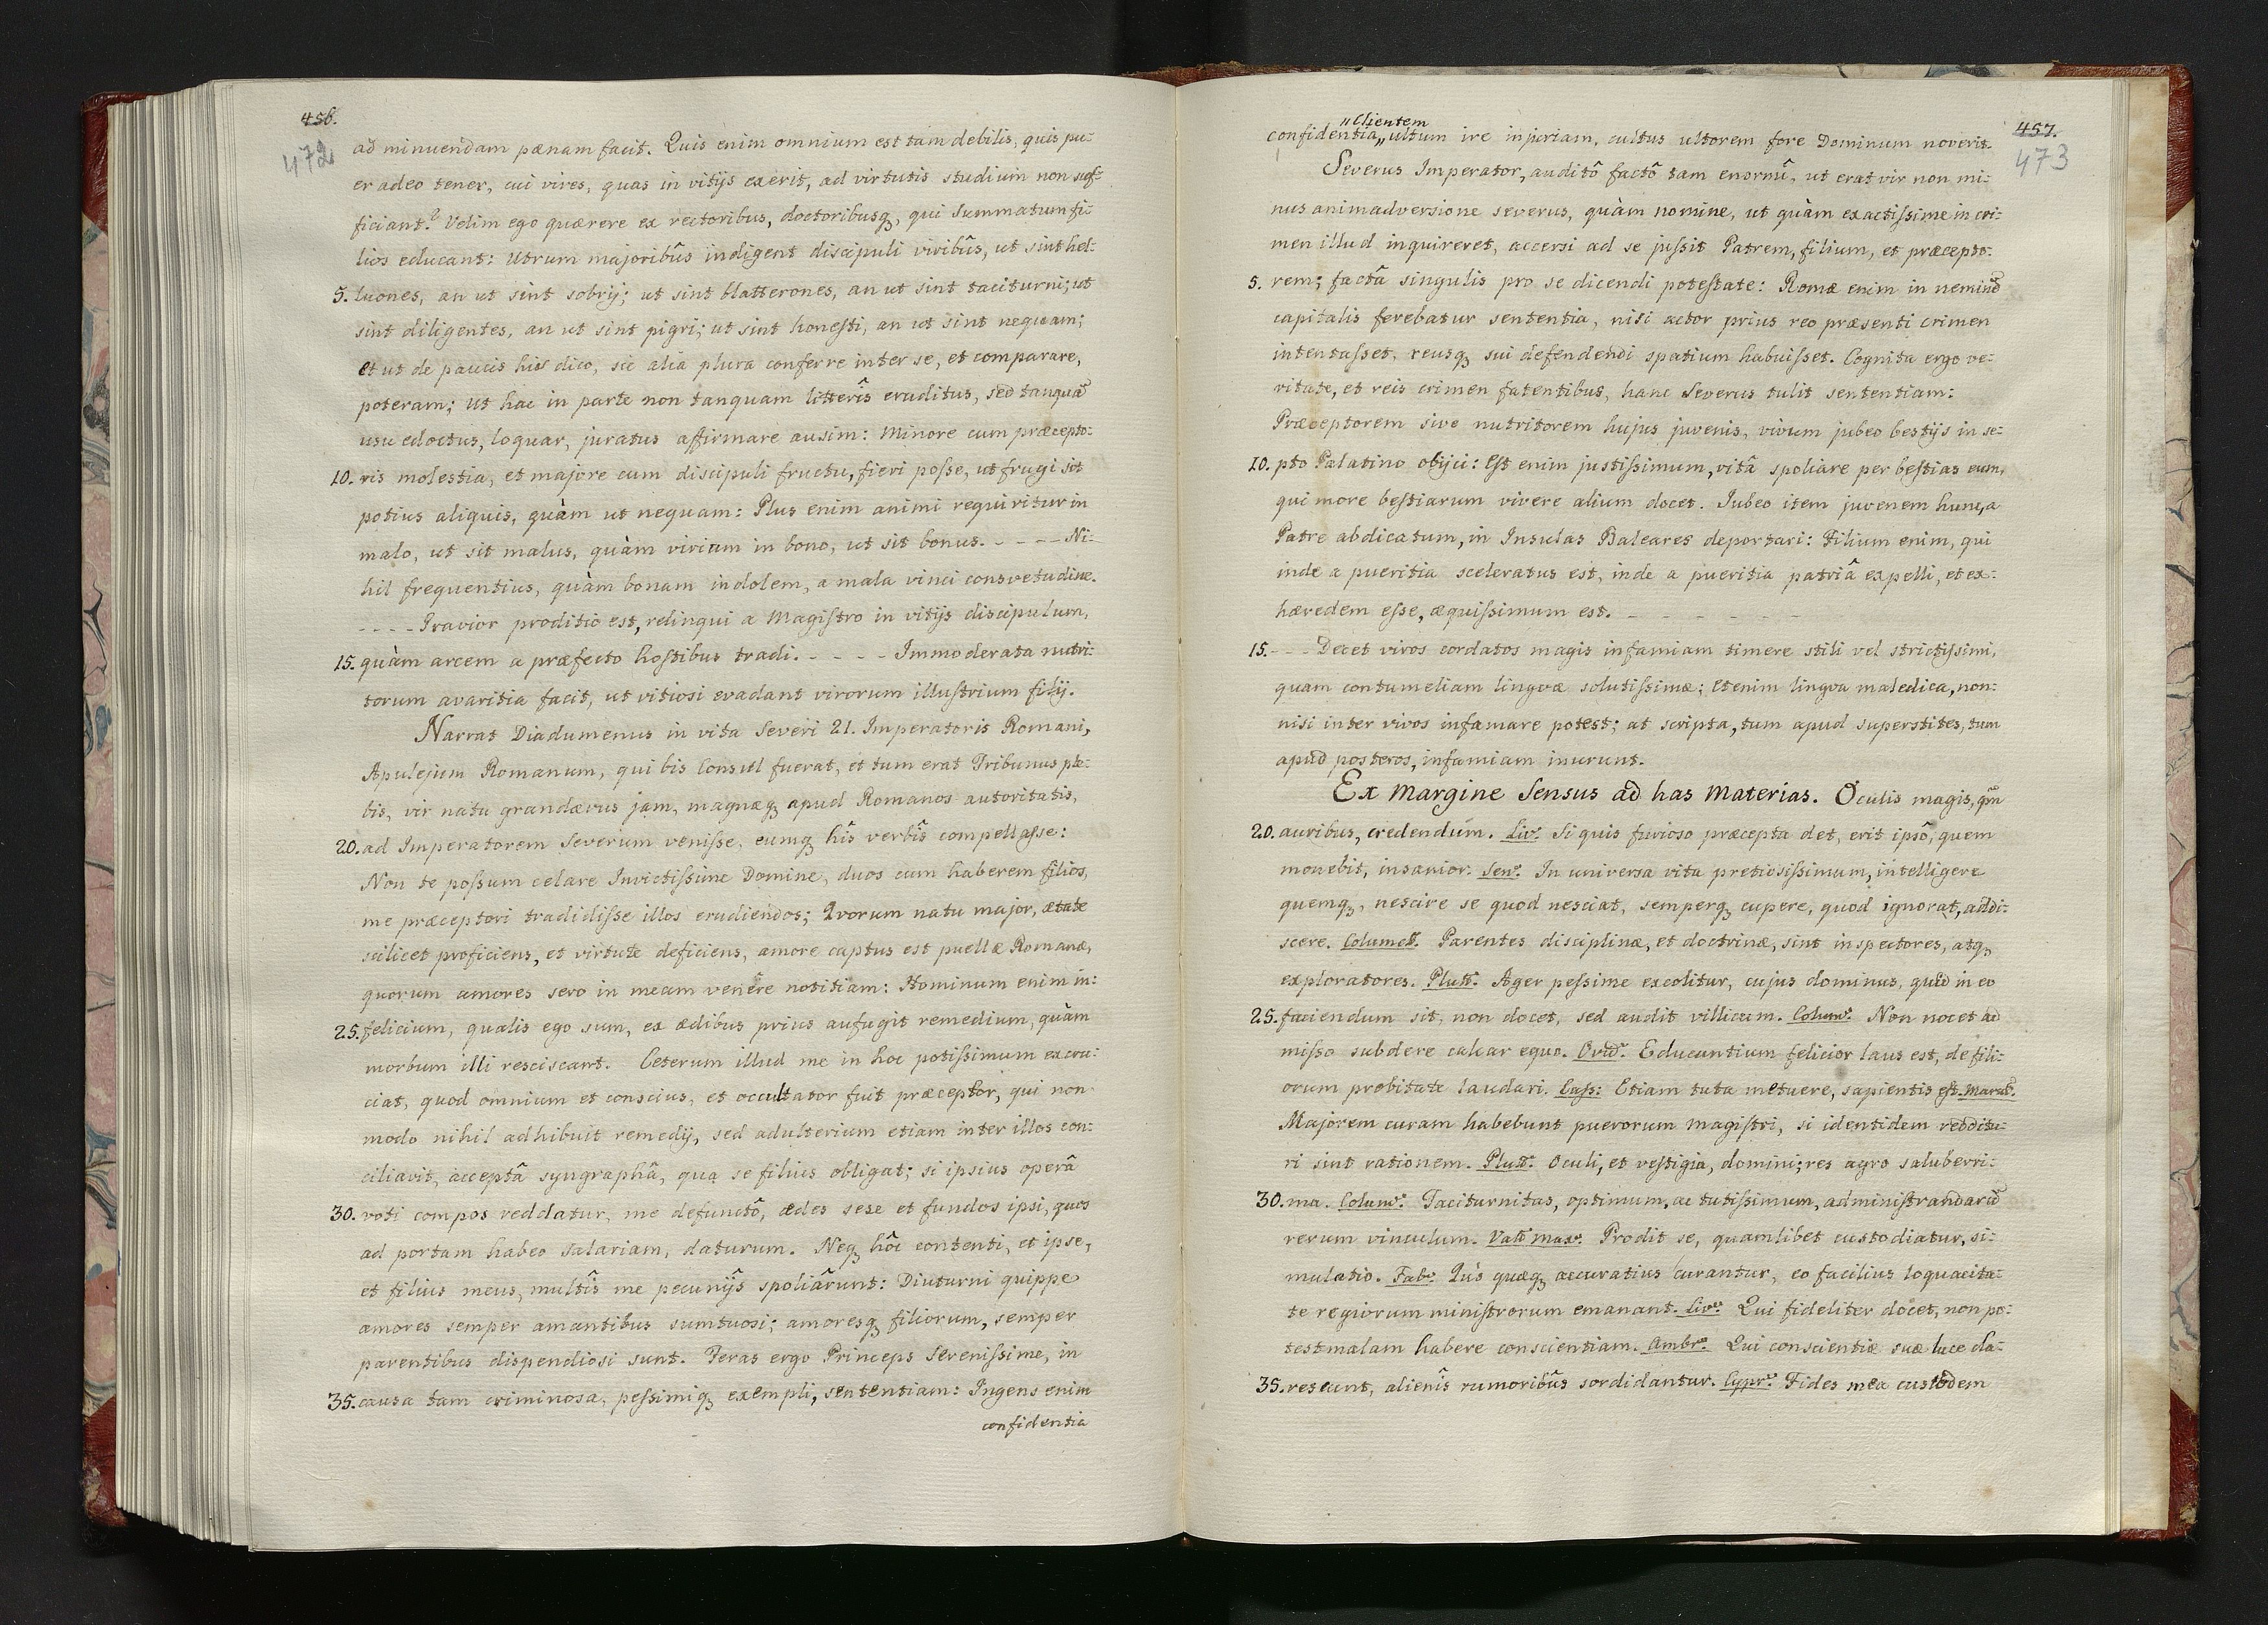 456.
472
ad minuendam pænam facit. Quis enim omnium est tam debilis, quis pu-
er adeo tener, cui vires, quas in vitijs exerit, ad virtutis studium non suf-
ficiant? Velim ego quærere ex rectoribus, doctoribusq, qui summatum fi-
lios educant: Utrum majoribûs indigent discipuli viribûs, ut sint hel-
5. luones, an ut sint sobrij; ut sint blatterones, an ut sint taciturni; ut
sint diligentes, an ut sint pigri; ut sint honesti, an ut sint nequam;
et ut de paucis his dico, sic alia plura conferre inter se, et comparare,
poteram; ut hac in parte non tanquam litterîs eruditus, sed tanquã
usu edoctus, loquar, juratus affirmare ausim: Minore cum præcepto:
10. ris molestia, et majore cum discipuli fructu, fieri posse, ut frugi sit
potius aliquis, quàm ut nequam: Plus enim animi requiritur in
malo, ut sit malus, quàm virium in bono, ut sit bonus. - - - - Ni:
hil frequentius, quàm bonam indolem, a mala vinci consvetudine.
- - - - Gravior proditio est, relinqui a Magistro in vitijs discipulum,
15. quàm arcem a præfecto hostibus tradi. - - - - Immoderata nutri:
torum avaritia facit, ut vitiosi evadant virorum illustrium filij.
Narrat Diadumenus in vita Severi 21. Imperatoris Romani,
Apulejum Romanum, qui bis Consul fuerat, et tum erat Tribunus ple:
bis, vir natu grandævus jam, magnæq apud Romanos autoritatis,
20. ad Imperatorem Severum venisse, eumq hîs verbîs compellasse:
Non te possum celare Invictissime Domine, duos cum haberem filios,
me præceptori tradidisse illos erudiendos; Qvorum natu major, ætate
scilicet proficiens, et virtute deficiens, amore captus est puellæ Romanæ,
quorum amores sero in meam venêre notitiam: Hominum enim in:
25. felicium, qualis ego sum, ex ædibus prius aufugit remedium, quàm
morbum illi resciscant. Ceterum illud me in hoc potissimum excru:
ciat, quod omnium et conscius, et occultator fuit præceptor, qui non
modo nihil adhibuit remedij, sed adulterium etiam inter illos con:
ciliavit, acceptâ syngraphâ, qua se filius obligat; si ipsius operâ
30. voti compos reddatur, me defunctô, ædes sese et fundos ipsi, quos
ad portam habeo salariam, daturum. Neq hôc contenti, et ipse,
et filius meus, multîs me pecunijs spoliârunt: Diuturni quippe
amores semper amantibus sumtuosi; amoresq filiorum, semper
parentibus dispendiosi sunt. Feras ergo Princeps Serenissime, in
35. causa tam criminosa, pessimiq exempli, sententiam: Ingens enim
confidentia
457.
473
"Clientem
confidentia,, ultum ire injuriam, cultus ultorem fore Dominum noverit.
Severus Imperator, auditô factô tam enormî, ut erat vir non mi:
nus animadversione severus, quàm nomine, ut quàm exactissime in cri:
men illud inquireret, accersi ad se jussit Patrem, filium, et præcepto:
5. rem; factâ singulis pro se dicendi potestate: Romæ enim in neminẽ
capitalis ferebatur sententia, nisi actor prius reo præsenti crimen
intentasset, reusq sui defendendi spatium habuisset. Cognita ergo ve:
ritate, et reis crimen fatentibus, hanc Severus tulit sententiam:
Præceptorem sive nutritorem hujus juvenis, vivum jubeo bestijs in se:
10. pto Palatino objici: Est enim justissimum, vitâ spoliare per bestias eum,
qui more bestiarum vivere alium docet. Iubeo item juvenem hunc, a
Patre abdicatum, in Insulas Baleares deportari: Filium enim, qui
inde a pueritia sceleratus est, inde a pueritia patriâ expelli, et ex:
hæredem esse, æquissimum est. - - - - - -
15. - - - Decet viros cordatos magis infamiam timere stili vel strictissimi,
quam contumeliam lingvæ solutissimæ; Etenim lingva maledica, non:
nisi inter vivos infamare potest; at scripta, tum apud superstites, tum
apud posteros, infamiam inurunt.
Ex Margine Sensus ad has Materias. Oculis magis, qm
20. auribus, credendum. Liv. Si quis furioso præcepta det, erit ipsô, quem
monebit, insanior. Sen. In universa vita pretiosissimum, intelligere
quemq, nescire se quod nesciat, semperq cupere, quod ignorat, addi:
scere. Columell. Parentes disciplinæ, et doctrinæ, sint inspectores, atq
exploratores. Plut. Ager pessime excolitur, cujus dominus, quid in eo
25. faciendum sit, non docet, sed audit villicum. Colum. Non nocet ad
misso subdere calcar equo. Ovid. Educantium felicior laus est, de fili:
orum probitate laudari. Cass: Etiam tuta metuere, sapientis est.
Majorem curam habebunt puerorum magistri, si identidem redditu:
ri sint rationem. Plut. Oculi, et vestigia, domini; res agro saluberri:
30. ma. Colum. Taciturnitas, optimum, ac tutissimum, administrandarũ
rerum vinculum. Vall Max. Prodit se, quamlibet custodiatur, si:
mulatio. Fab. Quò quæq accuratius curantur, eo facilius loquacita:
te regiorum ministrorum emanant. Liv. Qui fideliter docet, non po:
test malam habere conscientiam. Ambr. Qui conscientiæ suæ luce cla:
35. rescunt, alienîs rumoribûs sordidantur. Cypr. Fides mea custodem